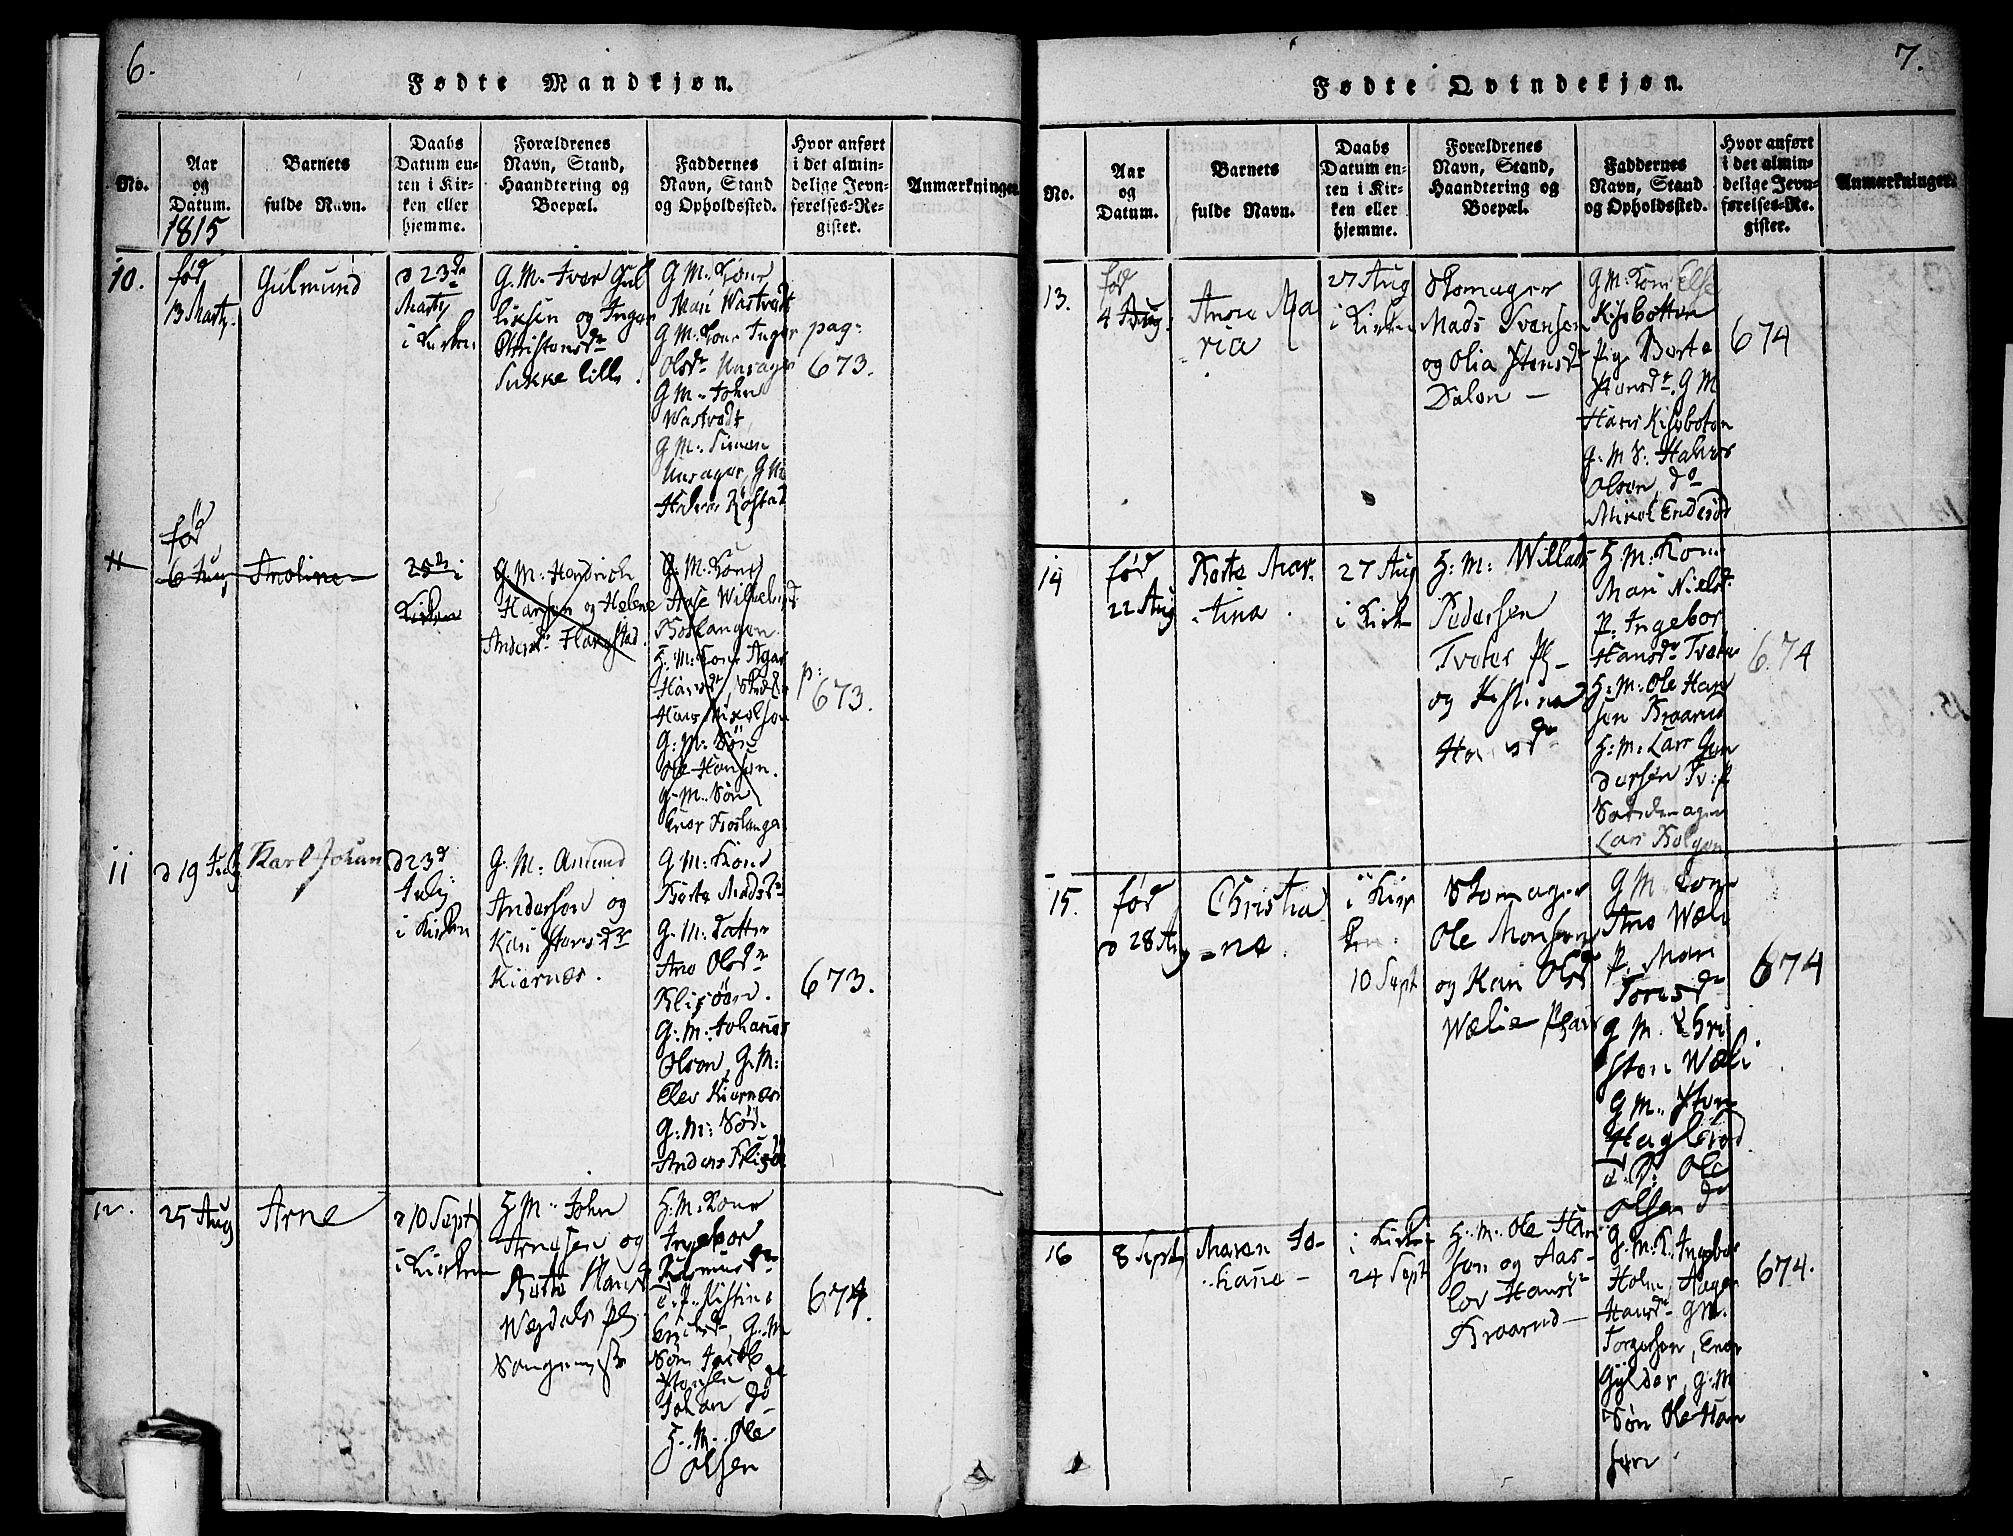 6.
Fødte Mandkjøn.
No.
Aar
og
Datum.
1815
Barnets
fulde Navn.
Daabs
Datum en-
ten i Kir-
ken eller
hjemme.
Forældrenes
Navn, Stand,
Haandtering og
Boepæl.
Faddernes
Navn, Stand
og Opholdssted.
Hvor anført
i det almin-
delige Jevn-
førelses-Re-
gister.
Anmærkninger.
10.
fød
13 Marty.
Gulmund
d 23de
Marty
i Kirken
G. M. Iver Gul
liksen og Inger
Christensdr
Sukke lille.
G M. Kone
Mari Wastvedt
G M. Kone Inger
Olsdr Unsager
G M. John
Wastvedt,
G M. Simen
Unsager, G M
Halvor Røstad
pag:
673.
11
fød
6 Aug
Anoline
25de i
Kirken
G M: Hendrich
Hansen og Helene
Andersdr Harestad.
G. M. Kone
Anse
Boslangen
H. M. Kone Agar
Hansdr,
Hans Nikolson
G. M. Søn
Ole Hansen.
G. M. Søn
Enor Boslangen
p:
673.
11
d 19 July
Karl Johan
d 23d
July
i Kirken
G. M: Amund
Andersen og
Kari Larsdr
Kiernæs.
G. M: Kone
Berte Madsdr
G. M. Datter
Ane Olsdr
G: M: Johanes
Olson, G. M:
Elev Kiernæs
G. M: Søn
Anders
673.
12.
25 Aug
Arne
d 10 Sept
i Kirken
H. M. John
Arnesen og
Berte Hansd
H. M: Kone
Ingebor
Rasmusdr
E. P. Kistine
Eriksdr, G. M
Søn Jacob
Hansen
Johan do
H. M. Ole
Olsen
674.
7.
Fødte Qvindekjøn.
No.
Aar
og
Datum.
Barnets
fulde Navn.
Daabs
Datum en-
ten i Kir-
ken eller
hjemme.
Forældrenes
Navn, Stand,
Haandtering og
Boepæl.
Faddernes
Navn, Stand
og Opholdssted.
Hvor anført
i det almin-
delige Jevn-
førelses-Re-
gister.
Anmærkninger.
13.
fød
4 Aug.
Anne Ma
ria
27 Aug
i Kirken
Skomager
Mads Svensen
og Olia Stensdr
Dalen –
G M: Kone Else
Kisbotten
Pig. Berte
Hansdr, G M
Hans Kisboten
G. M S. Halvor
Olson, do
Mikel Endesøn
674
14
fød
22 Aug
Berte Mar
tina.
27 Aug
i Kirk
H: M: Willads
Pedersen
Tveter Pl-
og Kistina
Hansdr
H. M: Kone
Mari Nielsd
P. Ingebor
Hansdr Tveter
H. M: Ole Han
sen Braarud
H: M: Lars Gun
dersen Tv: P
Lars Bolgen
674
15.
fød
d 28 Aug
Christia
=ne.
i Kir
ken.
10 Sept
Skomager
Ole Monsen
og Kari Olsd
Wælie Plads
G M Kone
Ane Wæli
P. Mari
Toresdr
G M. Chri
sten Wæli
G M. Sten
Haglerød
E. P: Ole
Olsen do
674
16
8 Sept
Maren Jo-
hane –
i Kirken
24 Sept
H. M. Ole Han
sen og Aas-
lov Hansdr
Braarud –
G. M. K. Ingebor
Holm, Aager
Hansdr G M.
Torgersen, Enor
Gylder, G. M
Søn Ole Han
sen
674.